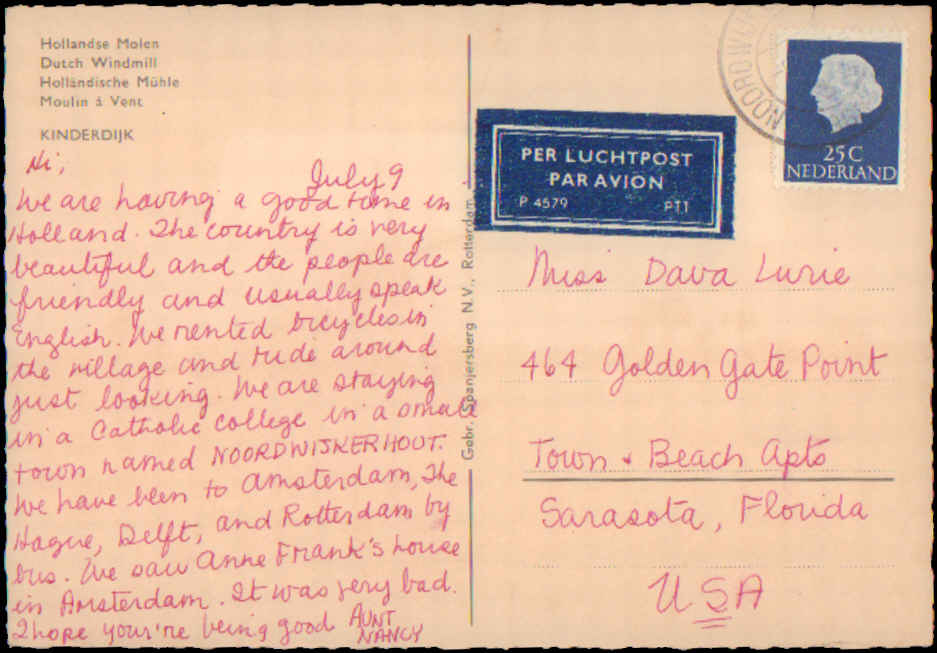 Hollandse Molen
Dutch Windmill
Holländische Mühle
Moulin à Vent
KINDERDIJK
Hi,
July 9
We are having a good time in
Holland. The country is very
beautiful and the people are
friendly and usually speak
English. We rented bicycles in
the village and ride around
just looking. We are staying
in a Catholic college in a small
town named NOORDWIJKERHOUT.
We have been to Amsterdam, The
Hague, Delft, and Rotterdam by
bus. We saw Anne Frank's house
in Amsterdam. It was very bad.
I hope your're being good AUNT
NANCY
Gebr. Spanjersberg N.V., Rotterdam
NOORDWIJK
25 C
NEDERLAND
PER LUCHTPOST
PAR AVION
P 4579 PTT
Miss Dava Lurie
464 Golden Gate Point
Town & Beach Apts
Sarasota, Florida
USA